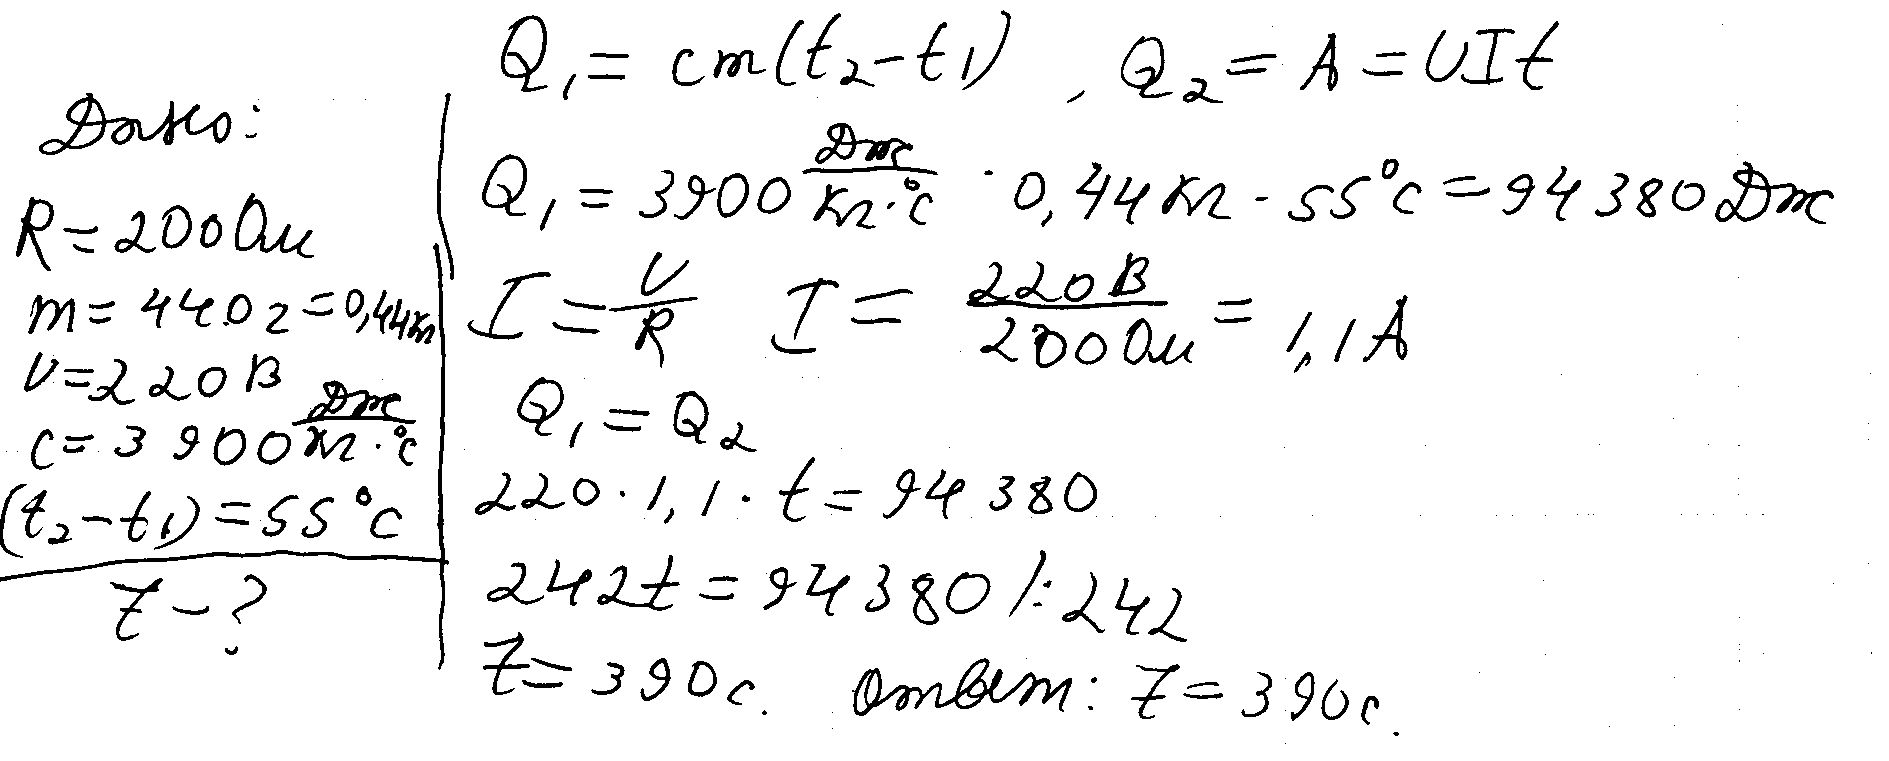 Дано:
R = 200 Ом
m = 440 г = 0,44 кг
U = 220 В
c = 3900 Дж/кг·°C
(t₂ - t₁) = 55°C
t - ?
Q₁ = cm(t₂ - t₁), Q₂ = A = UIt
Q₁ = 3900 Дж/кг·°C · 0,44 кг · 55°C = 94 380 Дж
I = U/R I = 220 В/200 Ом = 1,1 А
Q₁ = Q₂
220 · 1,1 · t = 94 380
242t = 94 380 /: 242
t = 390 с. Ответ: t = 390 с.